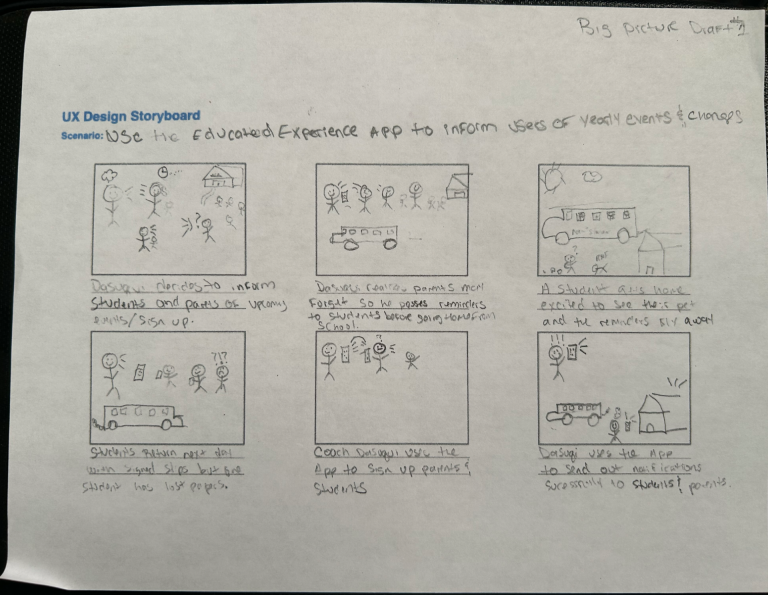 Big picture Draft #1
UX Design Storyboard
Scenario: Use the Educated Experience App to inform users of yearly events & changes
Dasuqui decides to inform
students and parents of upcoming
events/sign up.
Dasuqui parents
forget so he passes reminders
to students before going home from
school.
A student home
excited to see their pet
and the reminders fly away
Students return next day
with signed slips but one
student has lost papers.
Coach Dasuqui uses the
App to sign up parents &
students
uses the App
to send out notifications
sucessfully to students & parents.